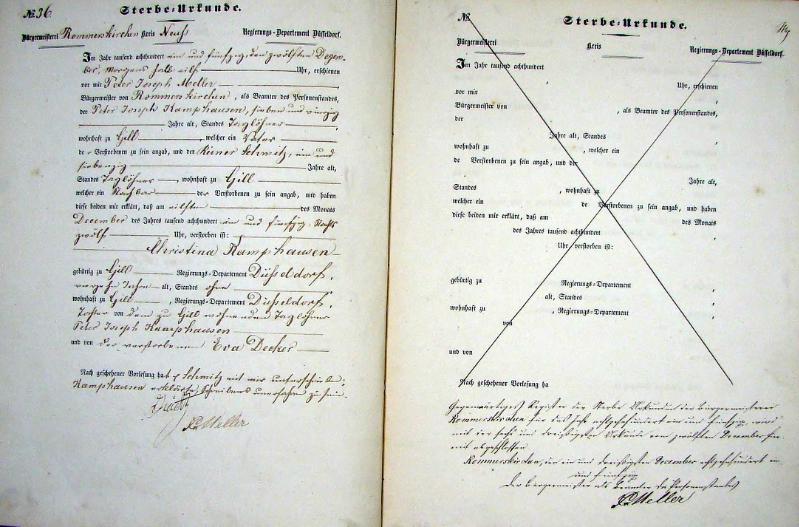 № 36. Sterbe-Urkunde.
Bürgermeisterei Rommerskirchen Kreis Neuß Regierungs-Departement Düsseldorf.
Im Jahr tausend achthundert ein und fünfzig, den zwölften Dezem-
ber, Morgens halb eilf Uhr, erschienen
vor mir Peter Joseph Meller
Bürgermeister von Rommerskirchen, als Beamten des Personenstandes,
der Peter Joseph Kamphausen, sieben und vierzig
Jahre alt, Standes Taglöhner
wohnhaft zu Gill, welcher ein Vater
de r Verstorbenen zu sein angab, und der Reiner Schmitz, ein und
siebenzig Jahre alt,
Standes Taglöhner, wohnhaft zu Gill
welcher ein Nachbar der Verstorbenen zu sein angab, und haben
diese beiden mir erklärt, daß am eilften des Monats
December des Jahres tausend achthundert ein und fünfzig, Nachts
zwölf Uhr, verstorben ist:
Christina Kamphausen
gebürtig zu Gill Regierungs-Departement Düsseldorf,
Jahre alt, Standes ohne
wohnhaft zu Gill, Regierungs-Departement Düsseldorf,
Tochter von dem zu Gill wohnenden Taglöhner
Peter Joseph Kamphausen
und von der verstorbenen Eva Decker
Nach geschehener Vorlesung hat Schmitz mit mir unterschrieben
Kamphausen erklärte Schreibens unerfahren zu sein.
Meller
№ Sterbe-Urkunde.
Bürgermeisterei Kreis Regierungs-Departement Düsseldorf.
Im Jahr tausend achthundert
Uhr, erschienen
vor mir
Bürgermeister von , als Beamten des Personenstandes,
der
Jahre alt, Standes
wohnhaft zu , welcher ein
de Verstorbenen zu sein angab, und der
Jahre alt,
Standes , wohnhaft zu
welcher ein de Verstorbenen zu sein angab, und haben
diese beiden mir erklärt, daß am des Monats
des Jahres tausend achthundert
Uhr, verstorben ist:
gebürtig zu Regierungs-Departement
alt, Standes
wohnhaft zu , Regierungs-Departement
von
und von
Nach geschehener Vorlesung ha
Gegenwärtiges Register der Sterbe Urkunden der Bürgermeisterei
Rommerskirchen für das Jahr achtzehnhundert ein und fünfzig, wird
mit der sechs und dreißigsten Urkunde vom zwölften December
mit abgeschlossen
Rommerskirchen, den ein und dreißigsten December achtzehnhundert ein
und fünfzig
Der Bürgermeister als Beamter des Personenstandes
Meller